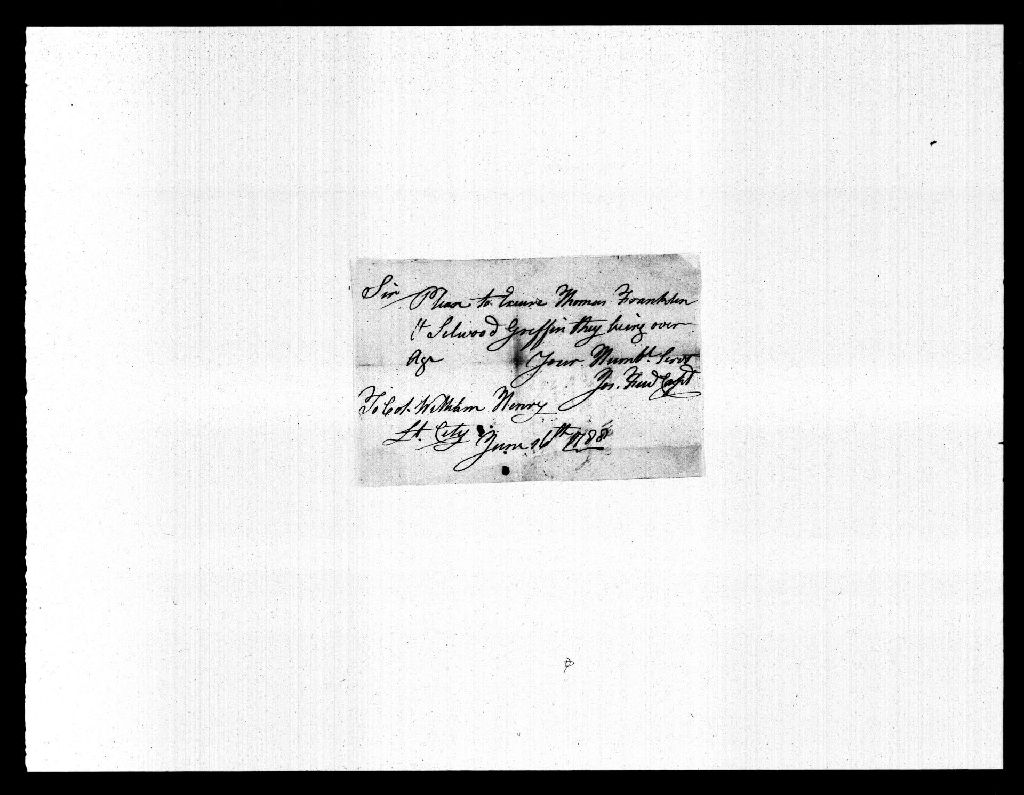 Sir Please to Excuse Thomas Franklin
& Selwood Griffin they being over
Age Your Humbl. Servt
Jos. Few Capt
To Col. William Henry
Lt. City June 16th 1788